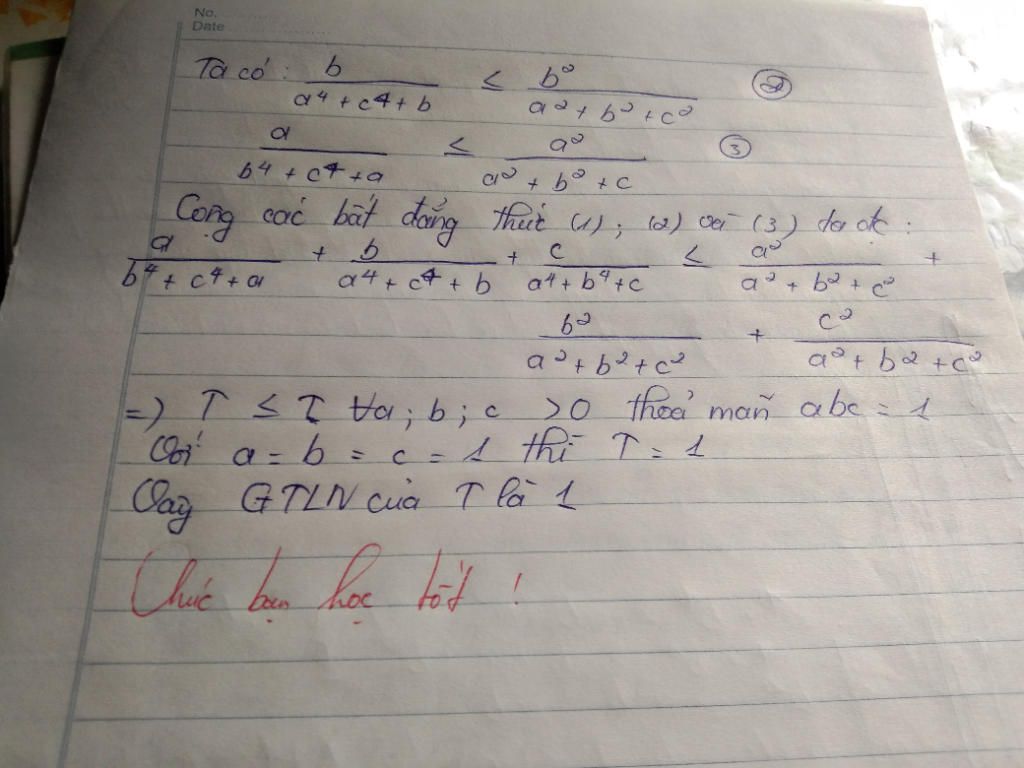 No.
Date
Ta có : b / (a⁴ + c⁴ + b) ≤ b² / (a² + b² + c²) (2)
a / (b⁴ + c⁴ + a) ≤ a² / (a² + b² + c) (3)
Cộng các bất đẳng thức (1) ; (2) và (3) ta đc :
a / (b⁴ + c⁴ + a) + b / (a⁴ + c⁴ + b) + c / (a⁴ + b⁴ + c) ≤ a² / (a² + b² + c²) +
b² / (a² + b² + c²) + c² / (a² + b² + c²)
=) T ≤ 1 ∀a ; b ; c > 0 thoả mãn abc = 1
Với a = b = c = 1 thì T = 1
Vậy GTLN của T là 1
Chúc bạn học tốt !